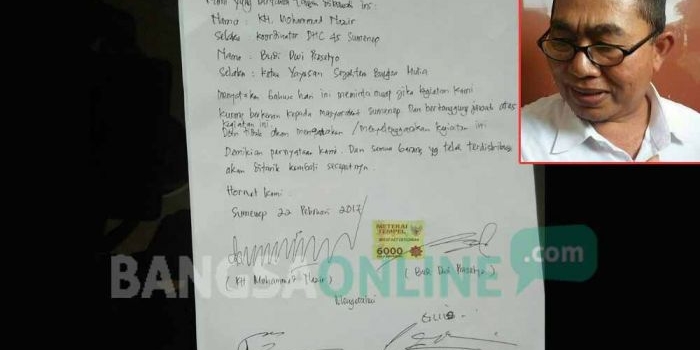 Kami yang bertanda tangan dibawah ini:
Nama : KH. Mohammad Nazir
Selaku : Koordinator DHC 45 Sumenep
Nama : Budi Dwi Prasetyo
Selaku : Ketua Yayasan
Menyatakan bahwa hari ini meminta maaf jika kegiatan kami
kurang berkenan kepada masyarakat Sumenep. Dan bertanggung jawab atas
kegiatan ini.
Dan tidak akan mengadakan / menyelenggarakan kegiatan ini
Demikian pernyataan kami. Dan semua barang yg telah terdistribusi
akan ditarik kembali secepatnya.
Hormat kami
Sumenep 22 Februari 2017
METERAI
TEMPEL
6000
BANGSAONLINE.com
(KH. Mohammad Nazir)
(Budi Dwi Prasetyo)
Mengetahui